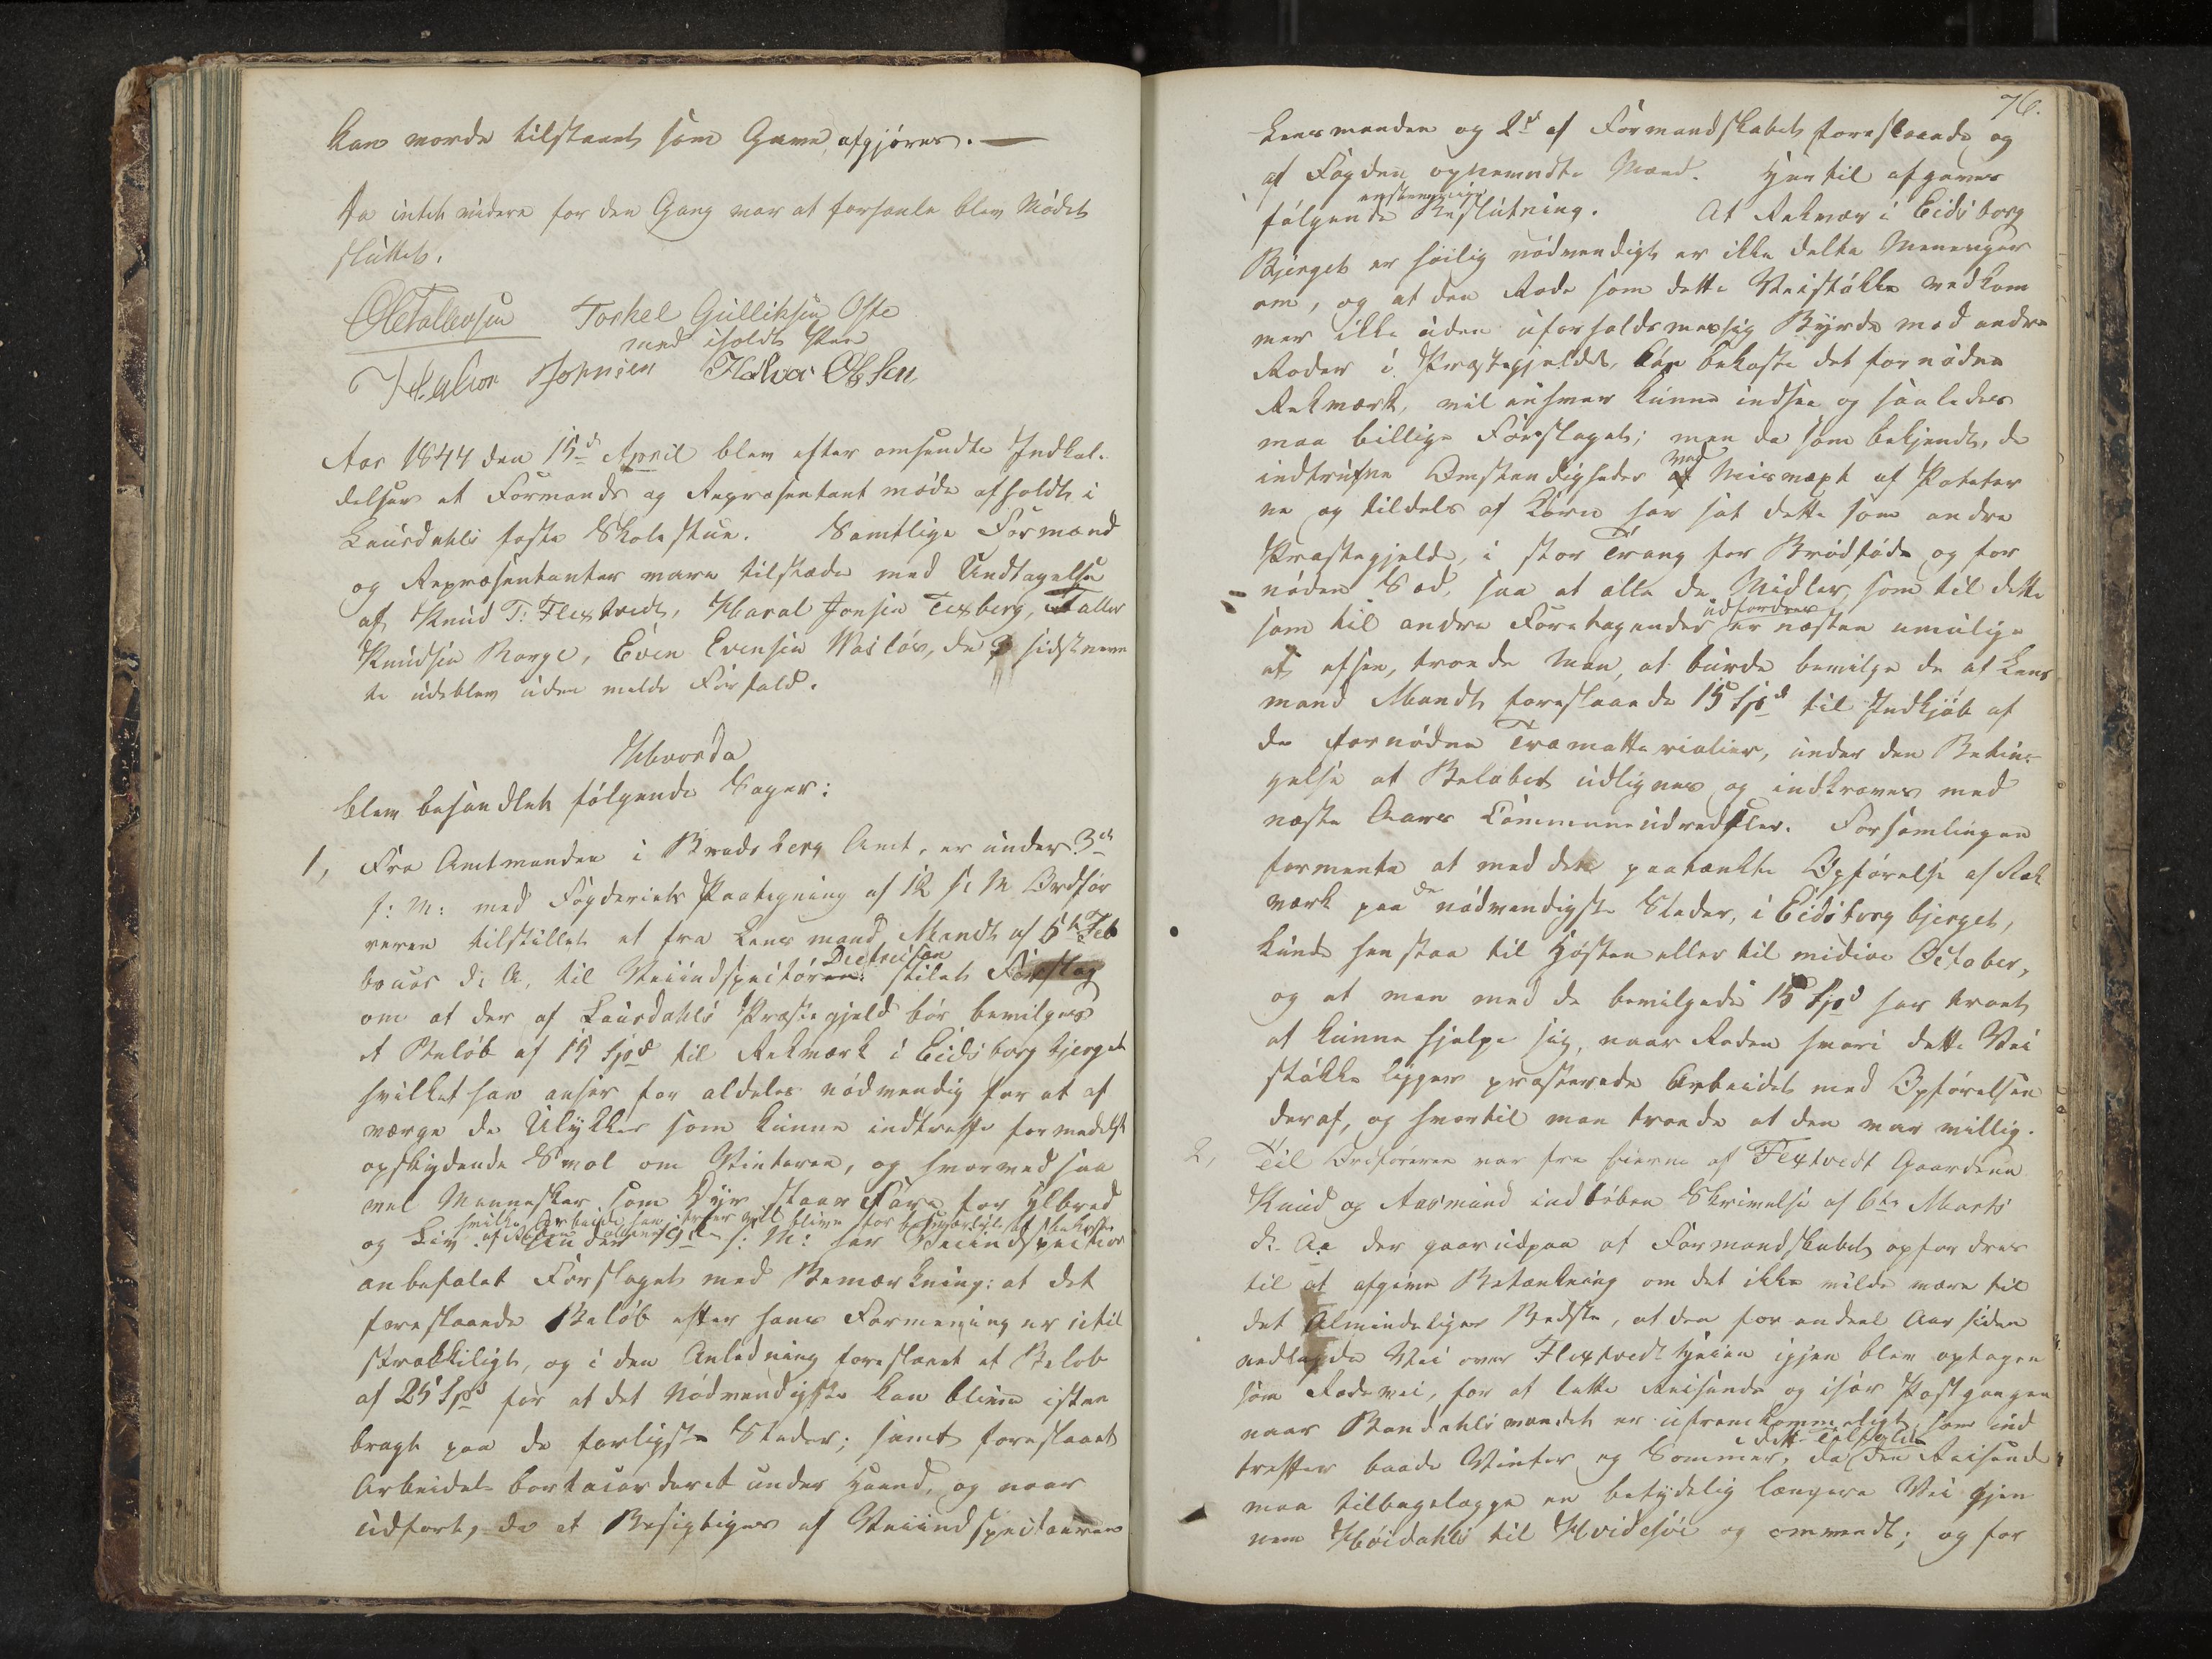 kan worde tilstaaet som Gave, afgjøres. —
Da intet videre for den Gang var at forhandle blev Mødet
sluttet.
Ole Tallevsen Torkel Gulliksen Ofte
med iholdt Pen
Halvor Johnsen Halvor Olsen
Aar 1844 den 15d April blev efter omsendte Indkal-
delser et Formands og Repræsentant møde afholdt i
Laurdahls faste Skolestue. Samtlige Formænd
og Repræsentanter vare tilstæde med Undtagelse
af Knud T: Flextvedt, Haral Jonsen Texberg, Taller
Knudsen Borge, Even Evensen Wasløs, de 3 sidstnevn
te udeblev uden meldt Forfald.
Hvorda
blev behandlet følgende Sager:
1, Fra Amtmanden i Bradsberg Amt, er under 3de
f: M: med Fogderiets Paategning af 12 s: M Ordfør
reren tilstillet et fra Lensmand Mandt af 5te Feb
Districtsen
bruar d: A, til Veiindspectøren stilet Forslag
om at der af Laurdahls Præstegjeld bør bevilges
et Beløb af 15 Spd til Rekværk i Eidsborg bjerget
hvilket han anser for aldeles nødvendig for at af
værge de Ulykker som kunne indtreffe formedelst
opskydende Svol om Vinteren, og hvorved saa
vel Mennesker som Dyr staar Fare for Helbred
hvilke Arbeide han i sser vil blive for besværligt at bekoste
og Liv. af Roden alleene Under 19de f: M: har Veiindspecteur
anbefalet Forslaget med Bemærkning: at det
foreslaaede Beløb efter hans Formening er util
strækkeligt, og i den Anledning foreslaaet et Beløb
af 25 Spd for at det Nødvendigste kan blive istan
bragt paa de farligste Steder; samt foreslaaet
Arbeidet bortacorderet under Haand, og naar
udført, da at Besigtiges af Veiindspectøren
76.
Lensmanden og 2de af Formandskabet foreslaaede og
af Fogden opnevndte Mænd. Hertil afgaves
enstemmige
følgende Beslutning. At Rekvær i Eidsborg
Bjerget er høilig nødvendigt er ikke delte Meninger
om, og at den Rode som dette Veistøkke vedkom
mer ikke uden uforholdsmæssig Byrde mod andre
Roder i Præstegjeldet, kan bekoste det fornødne
Rekværk, vil enhver kunne indsee og saaledes
maa billige Forslaget; men da som bekjendt, de
indtrufne Omstændigheder med Misvæxt af Poteter
ne og tildels af Korn har sat dette som andre
Præstegjeld, i stor Trang for Brødføde og for
nøden Sæd, saa at alle de Midler, som til dette
udfordres
som til andre Foretagender er næsten umulige
at afsee, troede Man, at burde bevilge de af Lens
mand Mandt foreslaaede 15 Spd til Indkjøb af
de fornødne Træmatterialier, under den Betin-
gelse at Beløbet udlignes og indkræves med
næste Aars Communeudredsler. Forsamlingen
formente at med den paatænkte Opførelse af Rek
værk paa de nødvendigste Steder, i Eidsborg bjerget,
kunde henstaa til Høsten eller til midien October,
og at man med de bevilgede 15 Spd har troet
at kunne hjelpe sig, naar Roden hvori dette Vei
støkke ligger præsterede Arbeidet med Opførelsen
deraf, og hvortil man troede at den var villig.
2, Til Ordføreren var fra Eierne af Flextvedt Gaardene
Knud og Aasmund indløben Skrivelse af 6te Marts
d: A: der gaar udpaa at Formandskabet opfordres
til at afgive Betænkning om det ikke vilde være til
det Almindeliges Bedste, at den for endeel Aar siden
nedlagde Vei over Flextvedt Heien igjen blev optagen
som Rodevei, for at lette Reisende og især Postgangen
naar Bandakls vandet er ufremkommeligt, som ind
i dette Tilfælde
treffer baade Vinter og Sommer, da den Reisende
maa tilbagelægge en betydelig længere Vei gjen
nem Høidahls til Hvidesøe og omvendt; og for